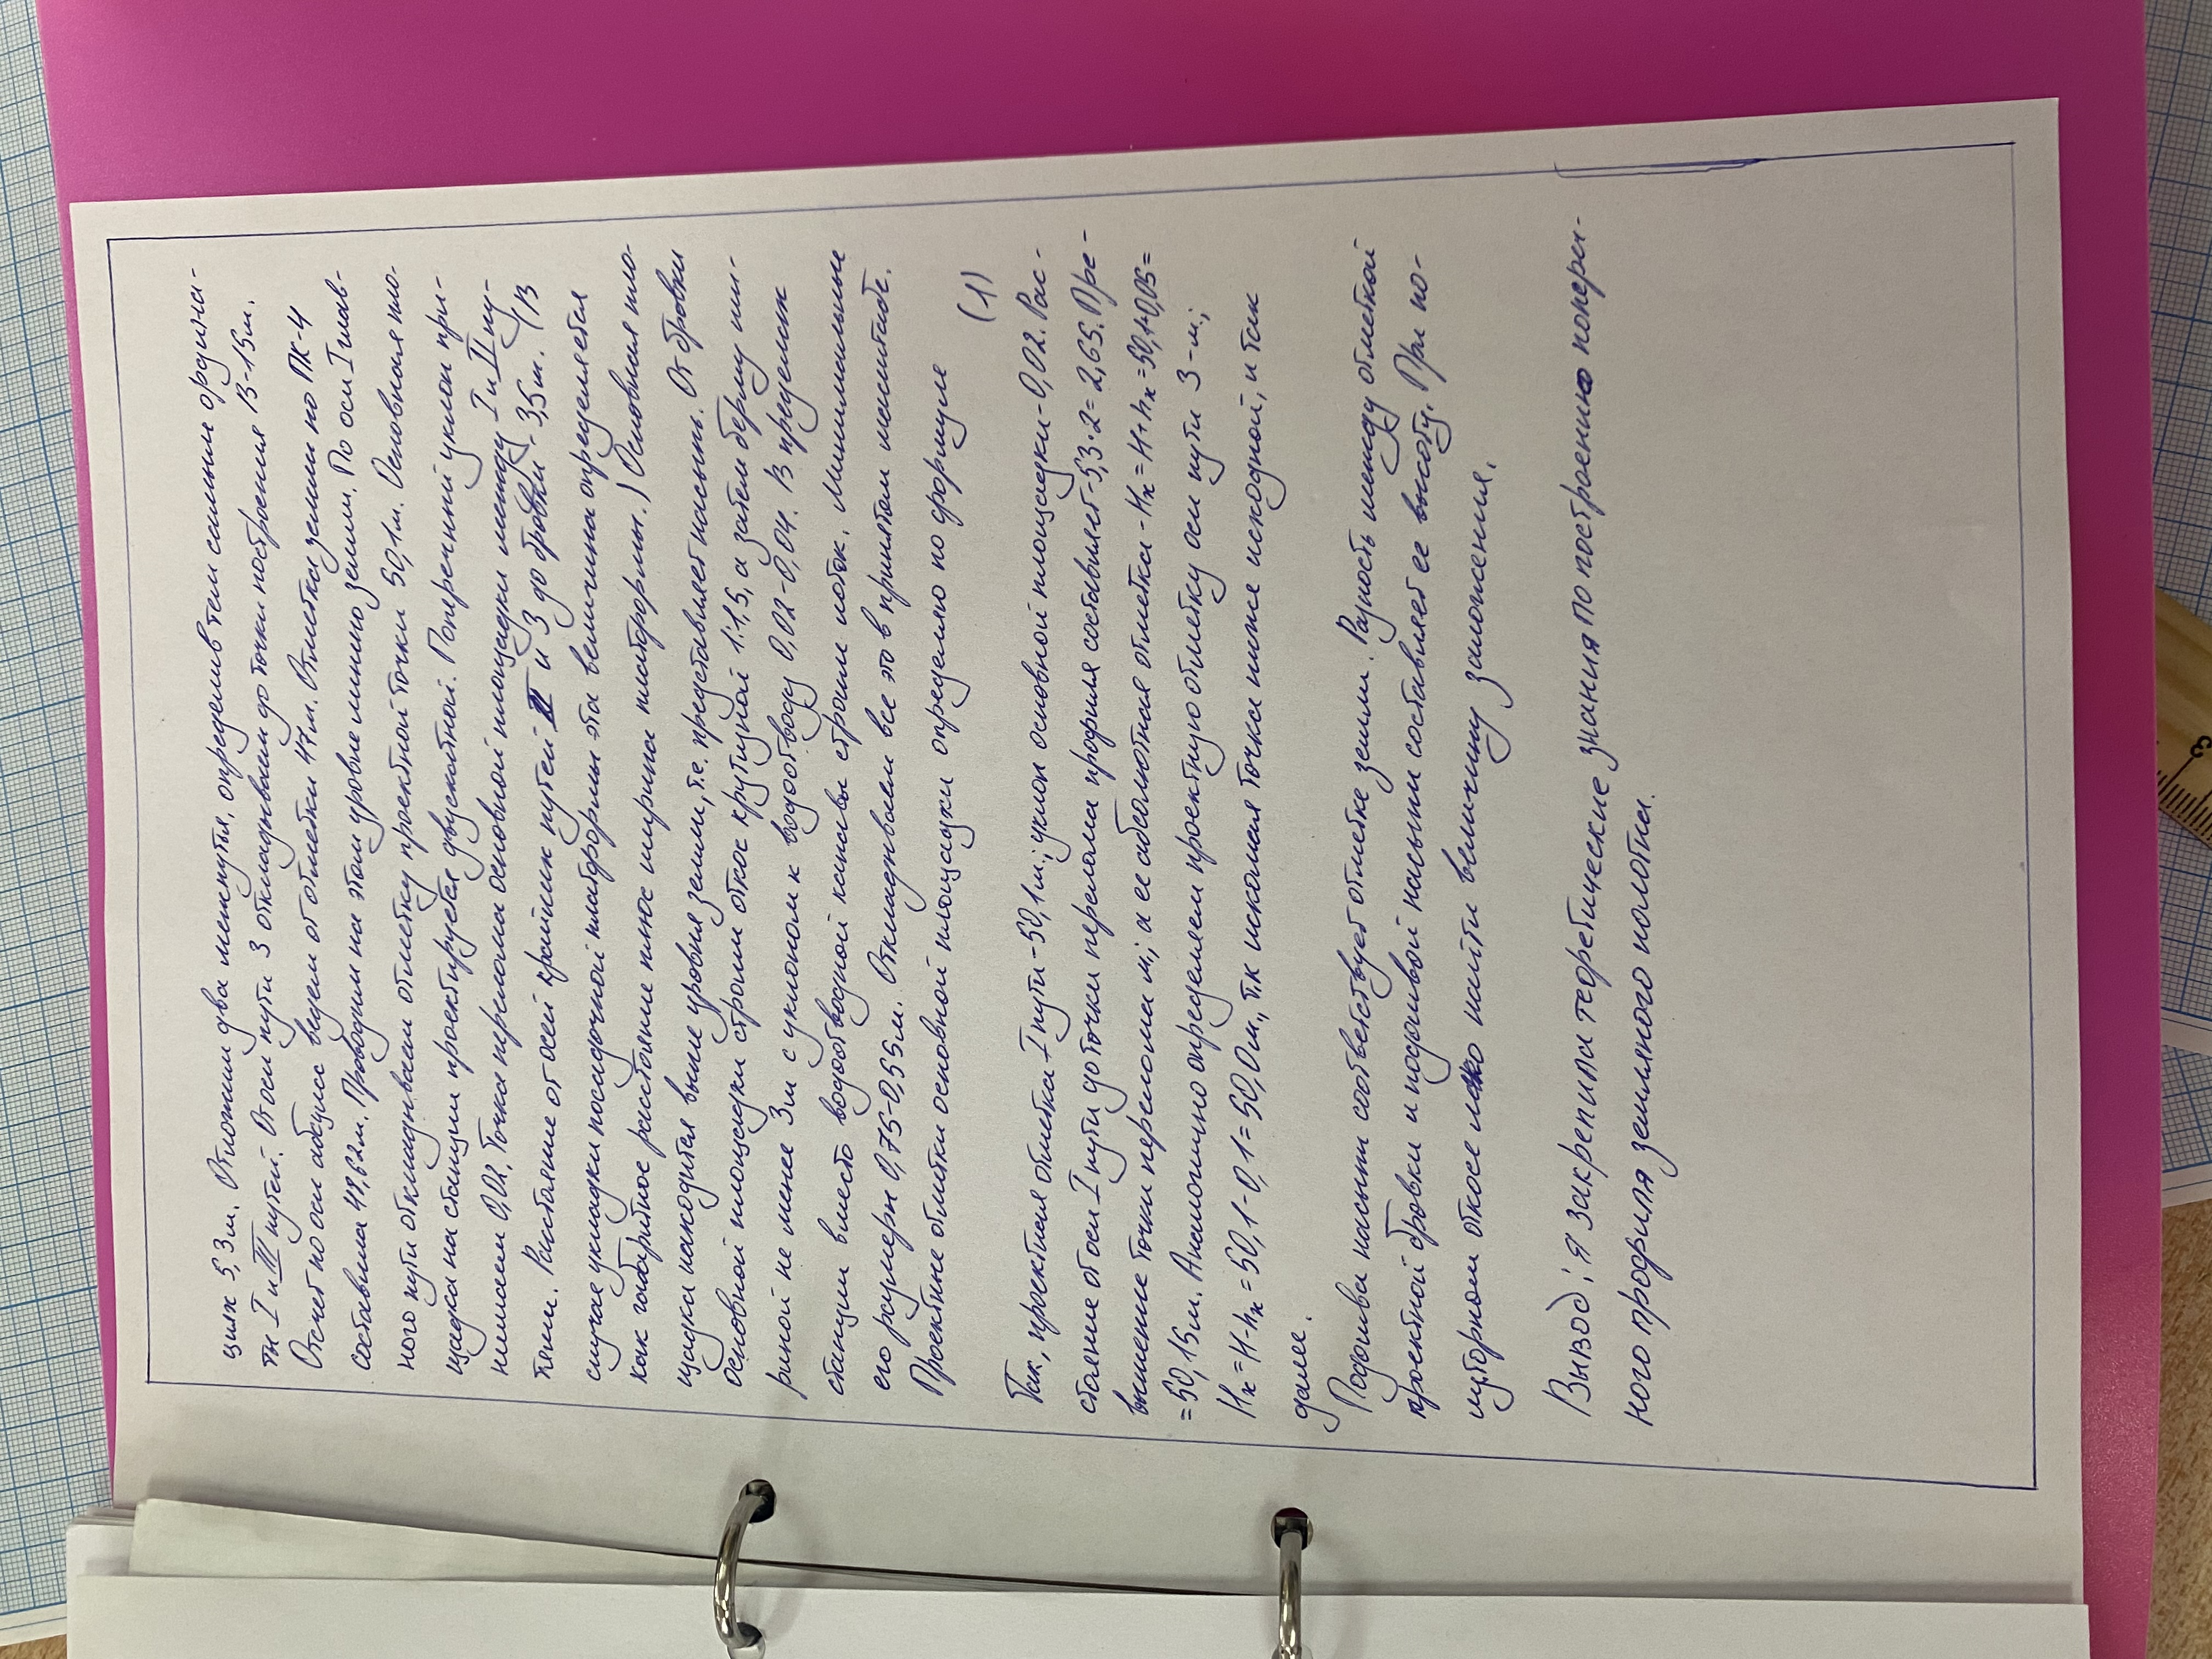 циях 5,3м. Отложим два межпутья, определив тем самым ордина-
ты I и III путей. От оси пути 3 откладываем до точки построения 13-15м.
Отсчет по оси абсцисс ведем от отметки 47м. Отметка земли по ПК-4
составила 49,62м. Проводим на этом уровне линию земли. По оси I глав-
ного пути откладываем отметку проектной точки 50,1м. Основная пло-
щадка на станции проектируется двускатной. Поперечный уклон при-
нимаем 0,02. Точка перелома основной площадки между I и II пу-
тями. Расстояние от осей крайних путей II и 3 до бровки - 3,5м. (В
случае укладки посадочной платформы эта величина определяется
как габаритное расстояние плюс ширина платформы.) Основная пло-
щадка находится выше уровня земли, т.е. представляет насыпь. От бровки
основной площадки строим откос крутизной 1:1,5, а затем берму ши-
риной не менее 3м с уклоном к водоотводу 0,02-0,04. В пределах
станции вместо водоотводной канавы строим лоток. Минимальные
его размеры 0,75-0,55м. Откладываем все это в принятом масштабе.
Проектные отметки основной площадки определяю по формуле
(1)
Так, проектная отметка I пути-50,1м; уклон основной площадки-0,02. Рас-
стояние от оси I пути до точки перелома профиля составляет-5,3·2=2,65. Пре-
вышение точки перелома м; а ее абсолютная отметка - Hх=H+hх=50,1+0,05=
=50,15м. Аналогично определяем проектную отметку оси пути 3-м;
Hх=H-hх=50,1-0,1=50,0м., т.к искомая точка ниже исходной, и так
далее.
Подошва насыпи соответствует отметке земли. Разность между отметкой
проектной бровки и подошвой насыпи составляет ее высоту. При по-
луторном откосе найти величину заложения.
Вывод: я закрепила теоретические знания по построению попере-
ного профиля земляного полотна.
3